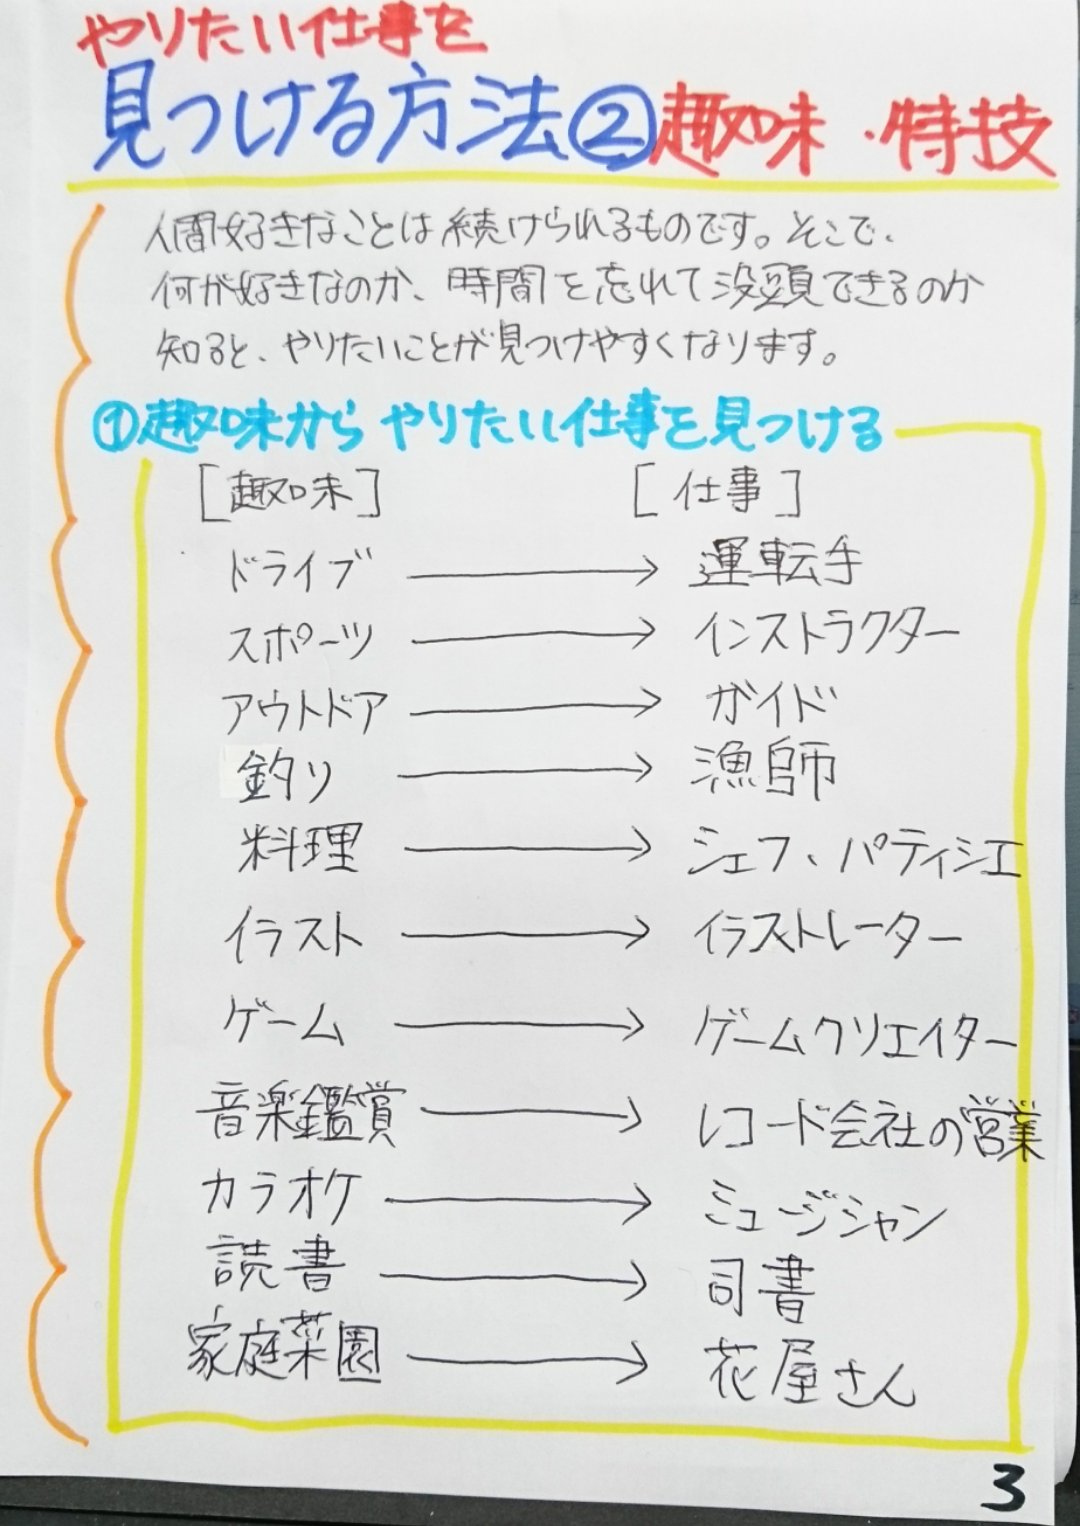 やりたい仕事を
見つける方法②趣味・特技
人間好きなことは続けられるものです。そこで、
何が好きなのか、時間を忘れて没頭できるのか
知ると、やりたいことが見つけやすくなります。
①趣味からやりたい仕事を見つける
[趣味] [仕事]
ドライブ → 運転手
スポーツ → インストラクター
アウトドア → ガイド
釣り → 漁師
料理 → シェフ、パティシエ
イラスト → イラストレーター
ゲーム → ゲームクリエイター
音楽鑑賞 → レコード会社の営業
カラオケ → ミュージシャン
読書 → 司書
家庭菜園 → 花屋さん
3